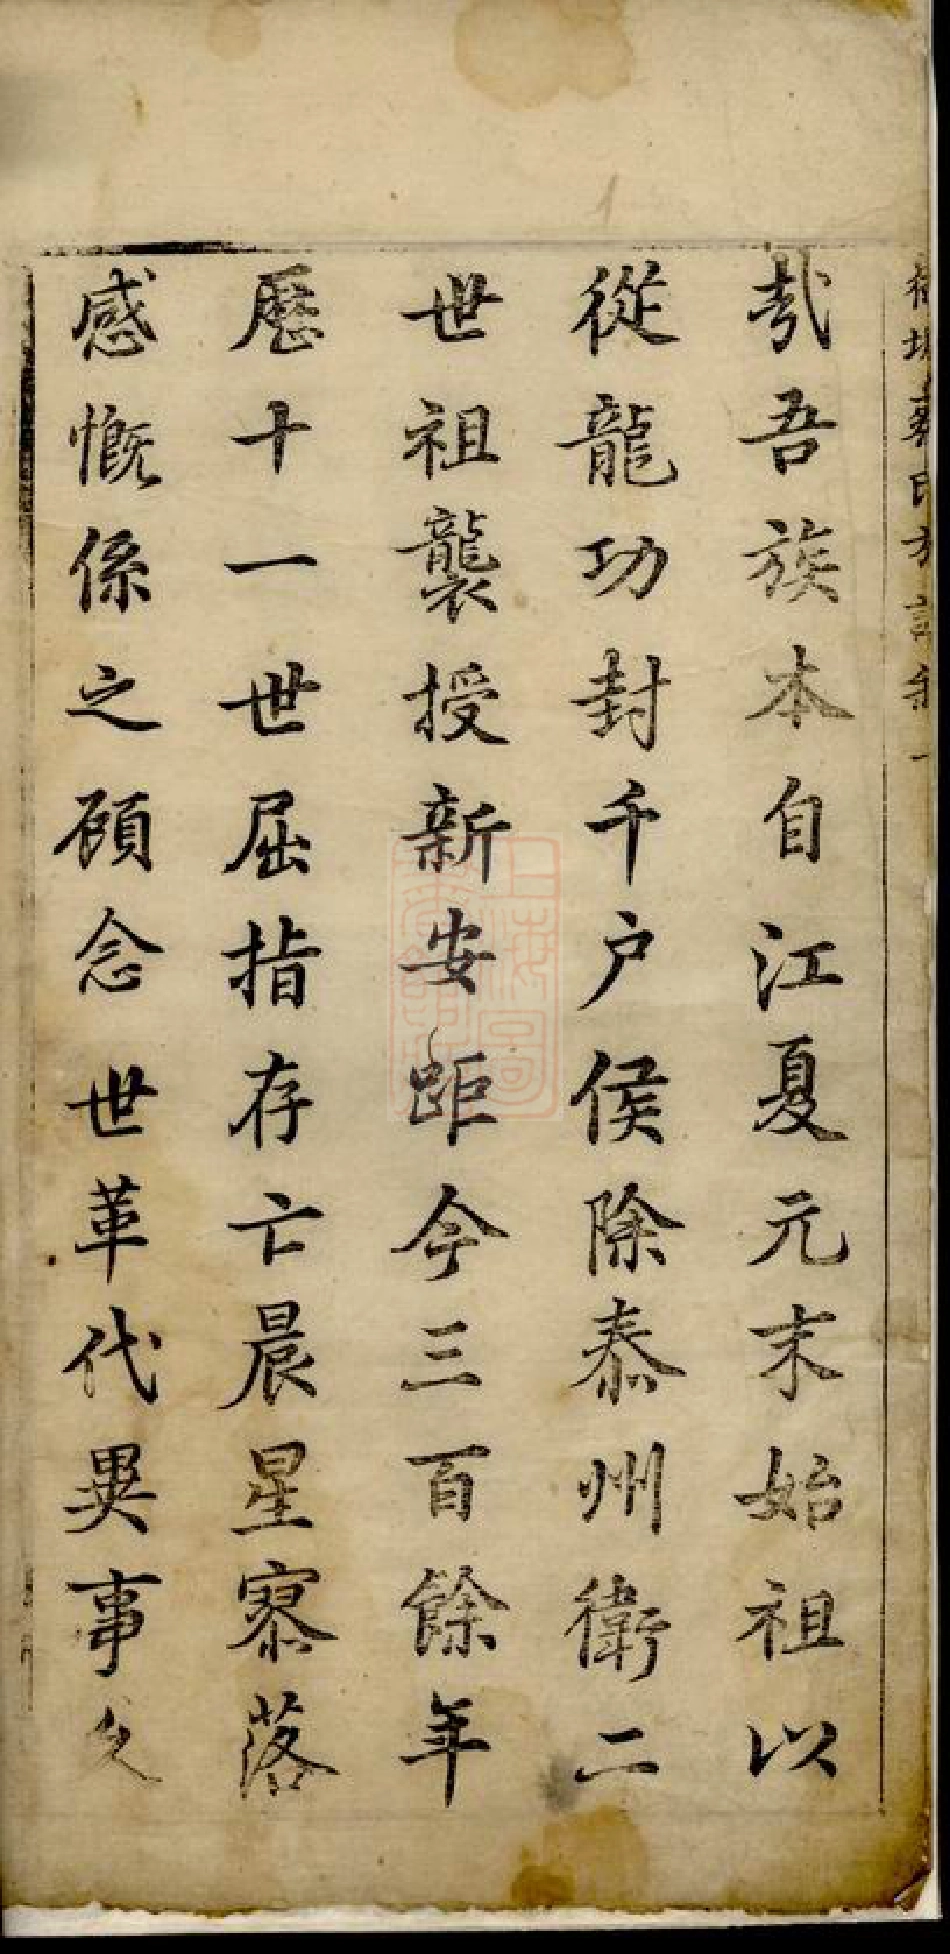 哉吾族本自江夏元末始祖以
從龍功封千户侯除泰州衛二
世祖襲授新安距今三百餘年
歷十一世屈指存亡晨星寥落
感慨係之顧念世革代異事久
氏